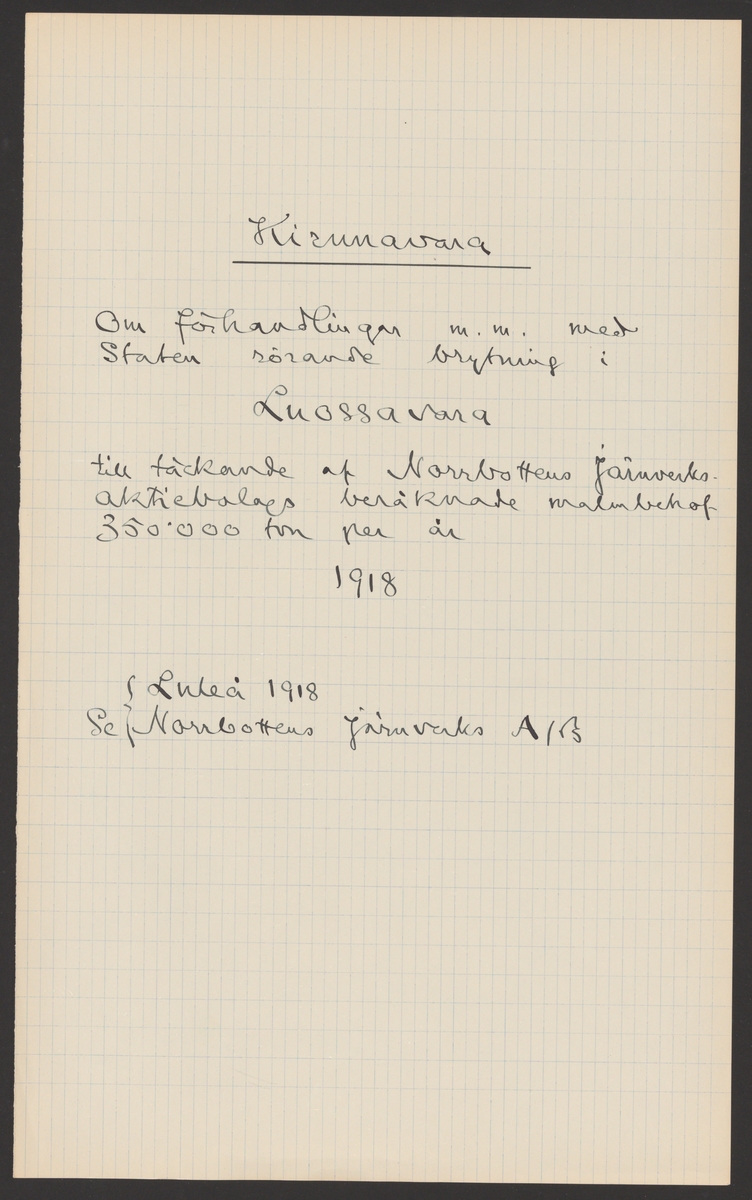 Kirunavara
Om förhandlingar m.m. med
Staten rörande brytning i
Luossavara
till täckande af Norrbottens Järnverks-
aktiebolags beräknade malmbehof
350.000 ton per år
1918
{ Luleå 1918
Se { Norrbottens Järnverks A/B